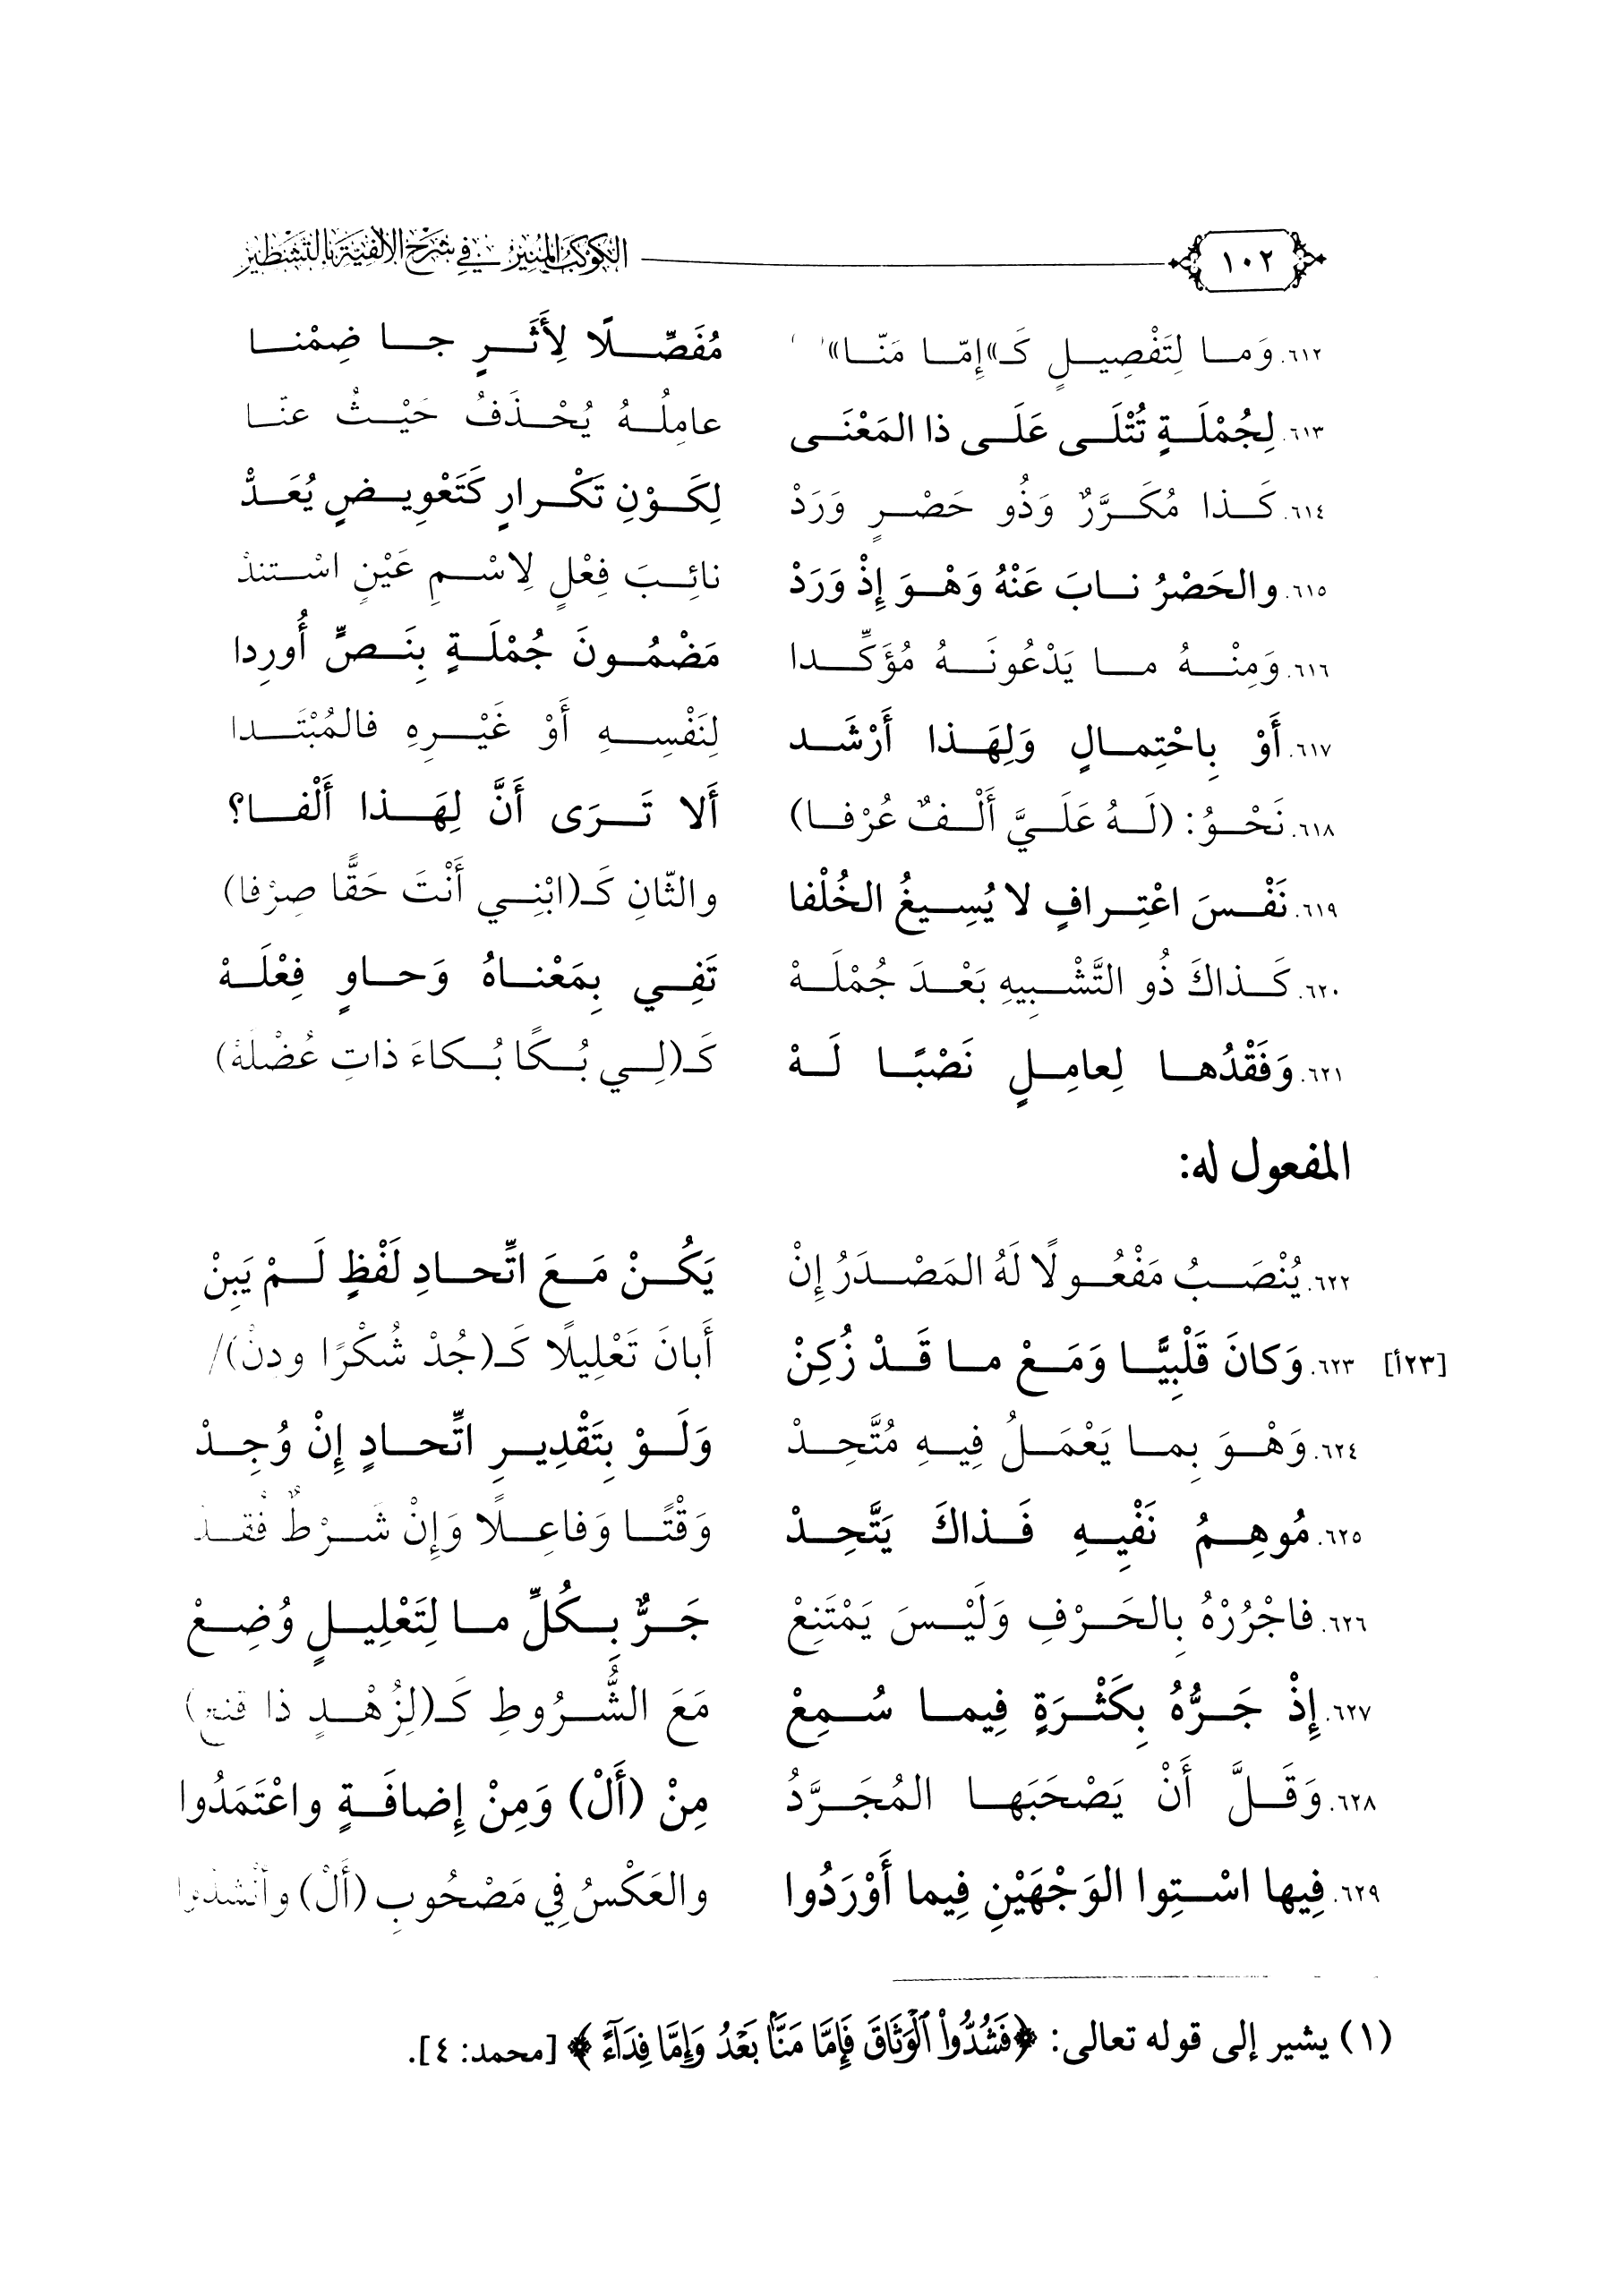 ١٠٢ الكوكب المنير في شرح الألفية بالتشطير
٦١٢. وَما لِتَفْصِيلٍ كَـ«إِمّا مَنّا» مُفَصِّلًا لِأَثَرٍ جا ضِمْنا
٦١٣. لِجُمْلَةٍ تُتْلَى عَلَى ذا المَعْنَى عامِلُهُ يُحْذَفُ حَيْثُ عنّا
٦١٤. كَذا مُكَرَّرٌ وَذُو حَصْرٍ وَرَدْ لِكَوْنِ تَكْرارٍ كَتَعْوِيضٍ يُعَدْ
٦١٥. والحَصْرُ نابَ عَنْهُ وَهْوَ إِذْ وَرَدْ نائِبَ فِعْلٍ لِاسْمِ عَيْنٍ اسْتندْ
٦١٦. وَمِنْهُ ما يَدْعُونَهُ مُؤَكِّدا مَضْمُونَ جُمْلَةٍ بِنَصٍّ أُورِدا
٦١٧. أَوْ بِاحْتِمالٍ وَلِهَذا أَرْشَد لِنَفْسِهِ أَوْ غَيْرِهِ فالمُبْتَدا
٦١٨. نَحْوُ: (لَهُ عَلَيَّ أَلْفٌ عُرْفا) أَلا تَرَى أَنَّ لِهَذا أَلْفا؟
٦١٩. نَفْسَ اعْتِرافٍ لا يُسِيغُ الخُلْفا والثّانِ كَـ(ابْنِي أَنْتَ حَقًّا صِرْفا)
٦٢٠. كَذاكَ ذُو التَّشْبِيهِ بَعْدَ جُمْلَهْ تَفِي بِمَعْناهُ وَحاوٍ فِعْلَهْ
٦٢١. وَفَقْدُها لِعامِلٍ نَصْبًا لَهْ كَـ(لِي بُكًا بُكاءَ ذاتِ عُضْلَهْ)
المفعول له:
٦٢٢. يُنْصَبُ مَفْعُولًا لَهُ المَصْدَرُ إِنْ يَكُنْ مَعَ اتِّحادِ لَفْظٍ لَمْ يَبِنْ
[٢٣أ] ٦٢٣. وَكانَ قَلْبِيًّا وَمَعْ ما قَدْ زُكِنْ أَبانَ تَعْلِيلًا كَـ(جُدْ شُكْرًا ودِنْ)/
٦٢٤. وَهْوَ بِما يَعْمَلُ فِيهِ مُتَّحِدْ وَلَوْ بِتَقْدِيرِ اتِّحادٍ إِنْ وُجِدْ
٦٢٥. مُوهِمُ نَفْيِهِ فَذاكَ يَتَّحِدْ وَقْتًا وَفاعِلًا وَإِنْ شَرْطٌ فُقدْ
٦٢٦. فاجْرُرْهُ بِالحَرْفِ وَلَيْسَ يَمْتَنِعْ جَرٌّ بِكُلِّ ما لِتَعْلِيلٍ وُضِعْ
٦٢٧. إِذْ جَرُّهُ بِكَثْرَةٍ فِيما سُمِعْ مَعَ الشُّرُوطِ كَـ(لِزُهْدٍ ذا قنع)
٦٢٨. وَقَلَّ أَنْ يَصْحَبَها المُجَرَّدُ مِنْ (أَلْ) وَمِنْ إِضافَةٍ واعْتَمَدُوا
٦٢٩. فِيها اسْتِوا الوَجْهَيْنِ فِيما أَوْرَدُوا والعَكْسُ فِي مَصْحُوبِ (أَلْ) وأَنْشدُوا
(١) يشير إلى قوله تعالى: ﴿فَشُدُّواْ ٱلْوَثَاقَ فَإِمَّا مَنَّۢا بَعْدُ وَإِمَّا فِدَآءً﴾ [محمد: ٤].